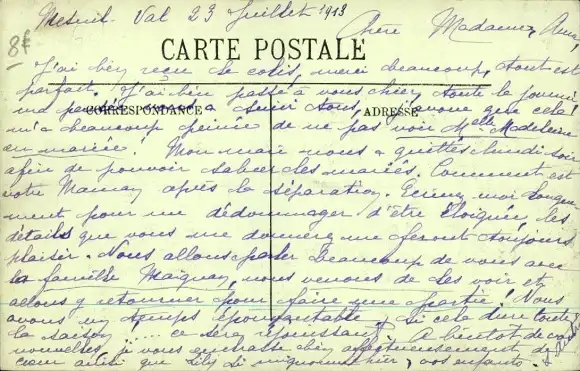 Mesnil-Val 23 Juillet 1913
8f
Chère Madame,
CARTE POSTALE
J'ai bien reçu le colis, merci beaucoup, tout est
parfait. J'ai bien passé à vous hier toute la journée
ma pensée vous a suivi tous, j'avoue que cela
CORRESPONDANCE
ADRESSE
m'a beaucoup peinée de ne pas voir Melle Madeleine
en mariée! Mon mari nous a quittés lundi soir
afin de pouvoir saluer les mariés. Comment est
votre Maman après la séparation. Ecrivez moi longue
ment pour me dédommager d'être éloignée, les
détails que vous me donnerez me feront toujours
plaisir. Nous allons parler beaucoup de vous avec
la famille, nous venons de les voir et
allons y retourner pour faire une partie! Nous
avons un temps épouvantable, si cela dure toute
la saison, .... ce sera réjouissant. A bientôt de vos
nouvelles, je vous embrasse bien affectueusement de
cœur ainsi que vos enfants.